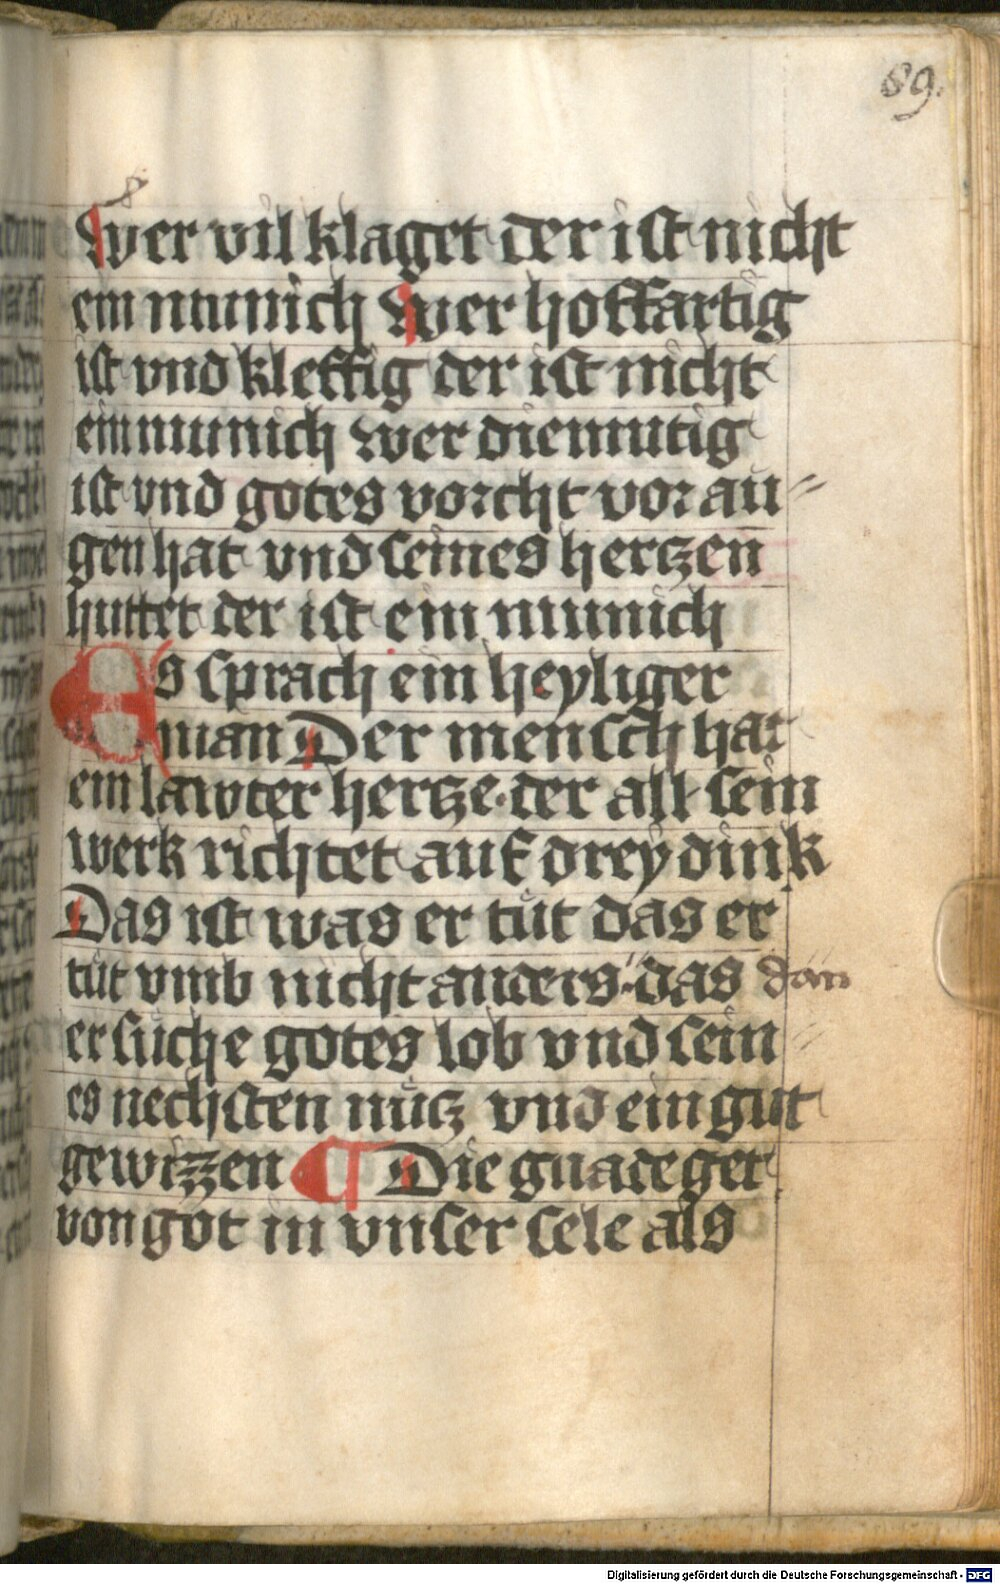 89.
Wer vil klaget der ist nicht
ein munich Wer hoffartig
ist vnd kleffig der ist nicht
ein munich wer diemutig
ist vnd gotes vorcht vor au-
gen hat vnd seines hertzen
huttet der ist ein munich
Es sprach ein heyliger
man Der mensch hat
ein lawter hertze der all sein
werk richtet auf drey dink
Das ist was er tut das er
tut vmb nicht anders das dan
er suche gotes lob vnd sein
es nechsten nutz vnd ein gut
gewizzen ¶ Die gnade get
von got in vnser sele als
Digitalisierung gefördert durch die Deutsche Forschungsgemeinschaft - DFG